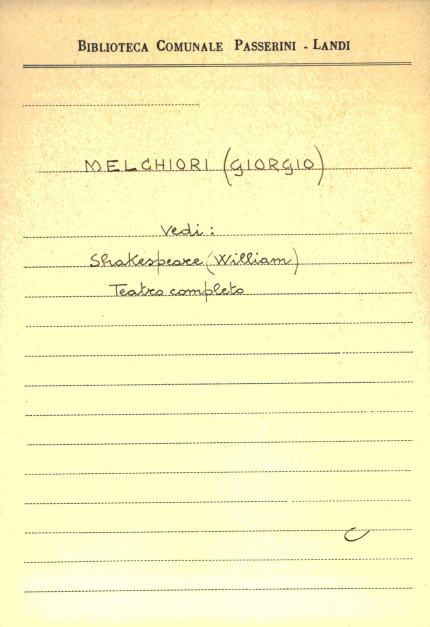 BIBLIOTECA COMUNALE PASSERINI - LANDI
MELCHIORI (GIORGIO)
Vedi:
Shakespeare (William)
Teatro completo
C